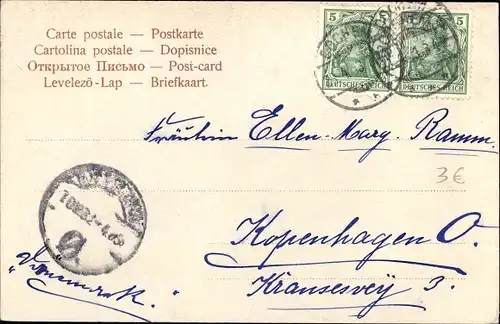 Carte postale — Postkarte
Cartolina postale — Dopisnice
Открытое Письмо — Post-card
Levelező-Lap — Briefkaart.
5 5
5
DEUTSCHES REICH
DEUTSCHES REICH
Fräulein Ellen-Marg. Ramm.
3€
Kopenhagen O.
Kransesvey 3.
"Danemark."